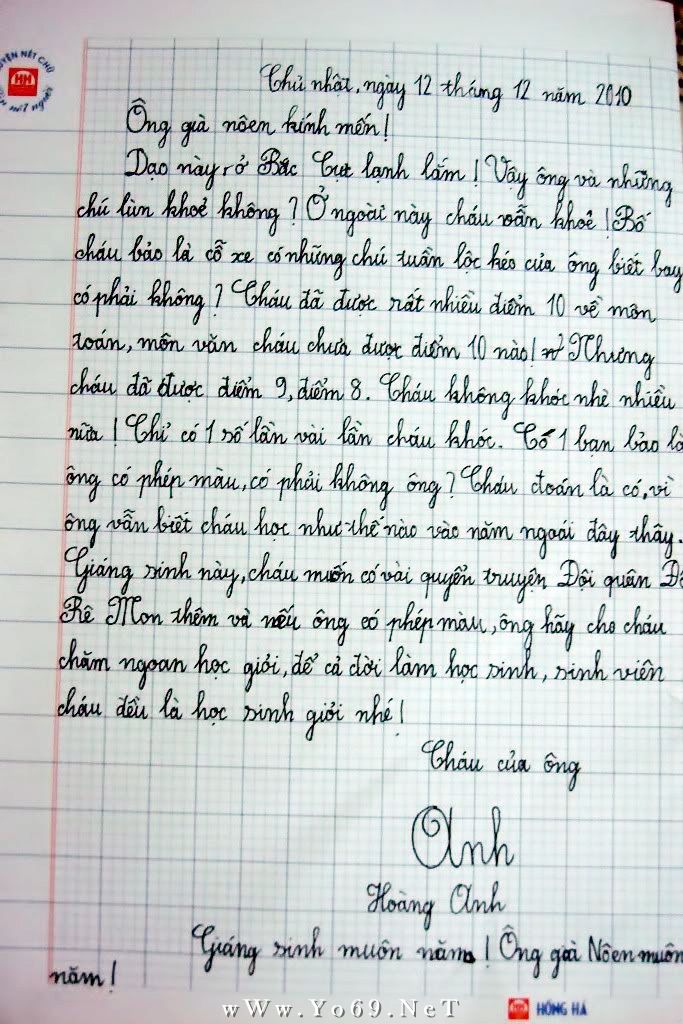 LUYỆN NÉT CHỮ
RÈN NẾT NGƯỜI
HH
Chủ nhật, ngày 12 tháng 12 năm 2010
Ông già nôen kính mến!
Dạo này, ở Bắc Cực lạnh lắm! Vậy ông và những
chú lùn khoẻ không? Ở ngoài này cháu vẫn khoẻ! Bố
cháu bảo là cỗ xe có những chú tuần lộc kéo của ông biết bay
có phải không? Cháu đã được rất nhiều điểm 10 về môn
toán, môn văn cháu chưa được điểm 10 nào! Nhưng
cháu đã được điểm 9, điểm 8. Cháu không khóc nhè nhiều
nữa! Chỉ có 1 số lần vài lần cháu khóc. Có 1 bạn bảo là
ông có phép màu, có phải không ông? Cháu đoán là có, vì
ông vẫn biết cháu học như thế nào vào năm ngoái đây thây.
Giáng sinh này, cháu muốn có vài quyển truyện Đội quân Đô
Rê Mon thêm và nếu ông có phép màu, ông hãy cho cháu
chăm ngoan học giỏi, để cả đời làm học sinh, sinh viên
cháu đều là học sinh giỏi nhé!
Cháu của ông
Anh
Hoàng Anh
Giáng sinh muôn năm! Ông già Nôen muôn
năm!
wWw.Yo69.NeT
HỒNG HÀ